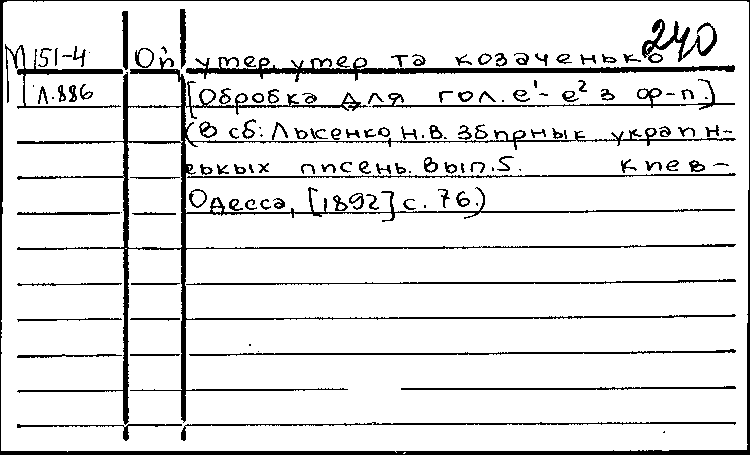 240
М 151-4 Ой, умер, умер та козаченько
Л.886 [Обробка для гол. е¹- е² з ф-п.]
(В сб: Лысенко, Н.В. Збірнык украін-
ськых писень. Вып. 5. Киев-
Одесса, [1892] с. 76.)